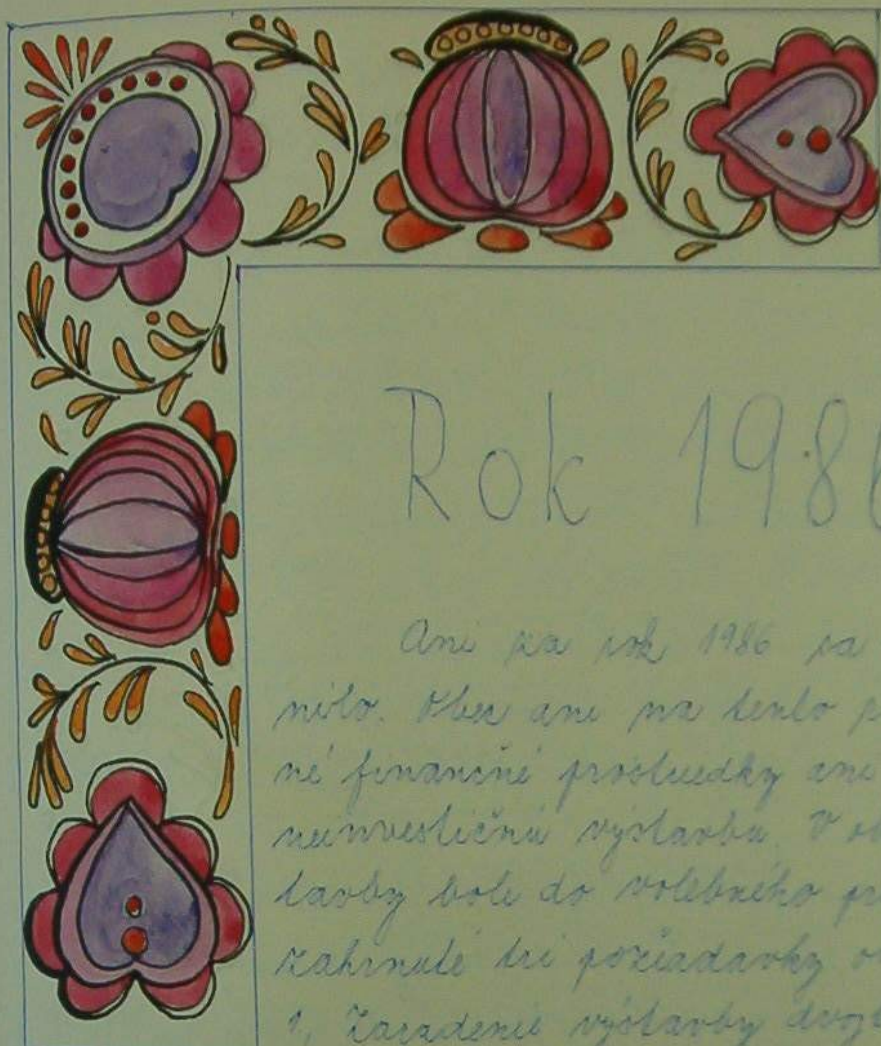 Rok 1986
Ani za rok 1986 sa
nilo. Obec ani na tento
né finančné prostriedky ani
neinvestičnú výstavbu. V
tavby boli do volebného
zahrnuté tri požiadavky
1, Zaradenie výstavby